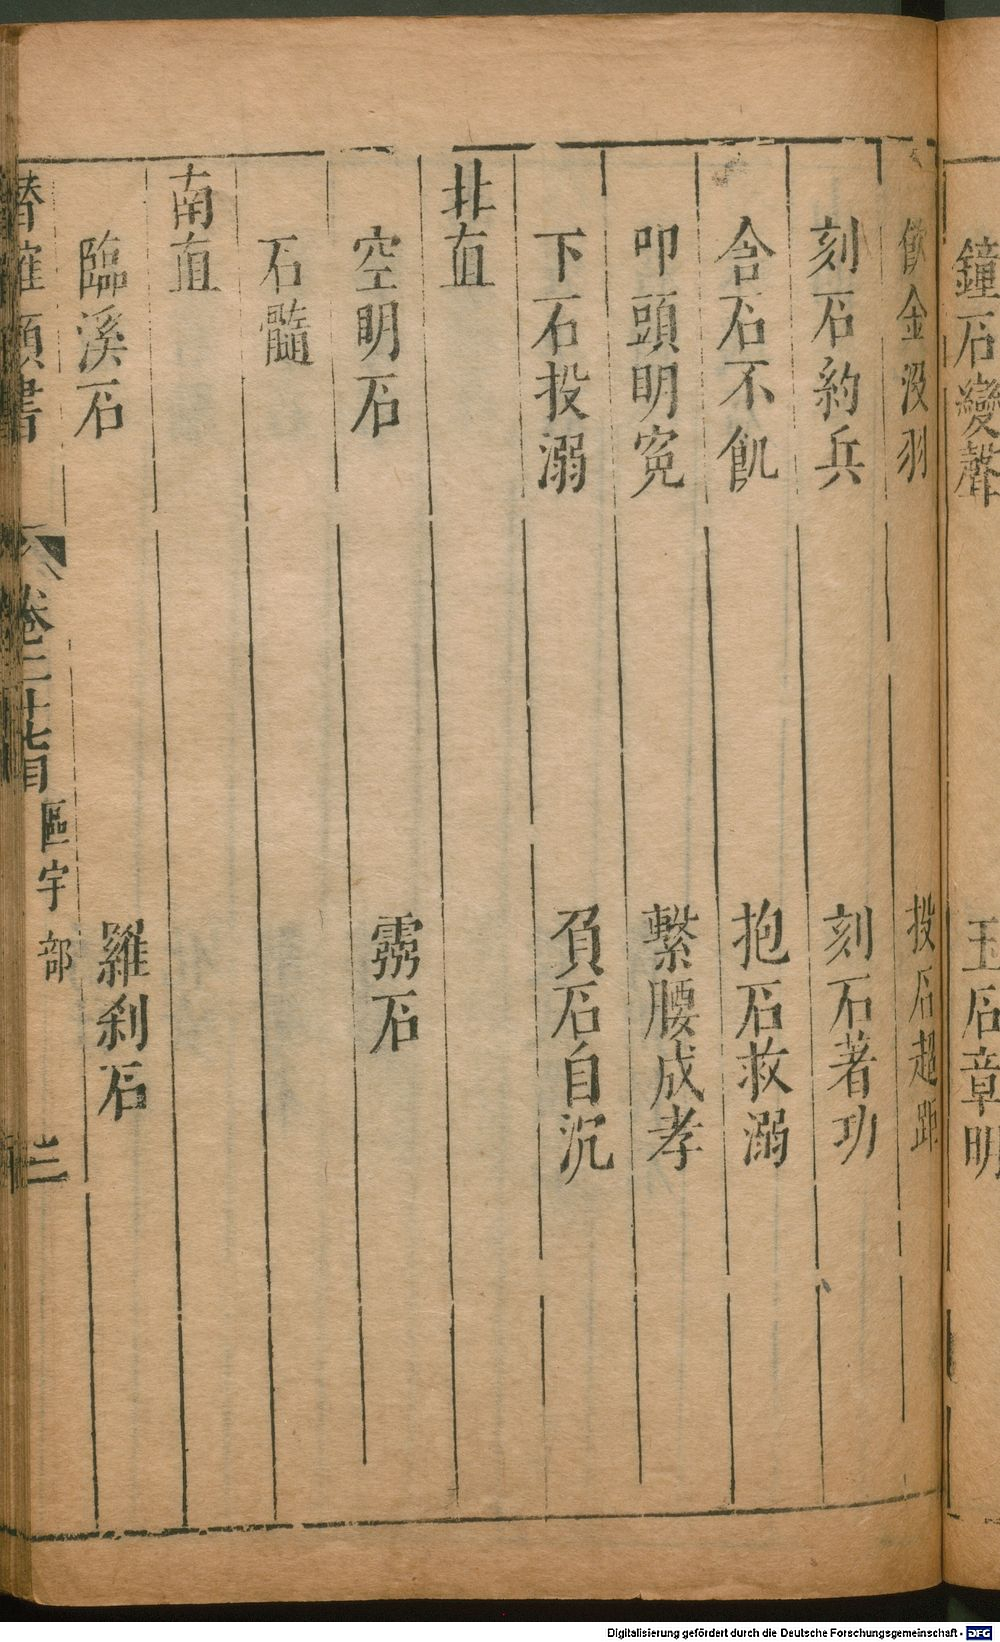 鐘石變聲　玉石章明
飲金沒羽　投石超距
刻石約兵　刻石著功
含石不飢　抱石救溺
叩頭明冤　繫腰成孝
下石投溺　負石自沉
北直
空明石　霛石
石髓
南直
臨溪石　羅刹石
潛確類書　卷二十七目　區宇部
Digitalisierung gefördert durch die Deutsche Forschungsgemeinschaft - DFG